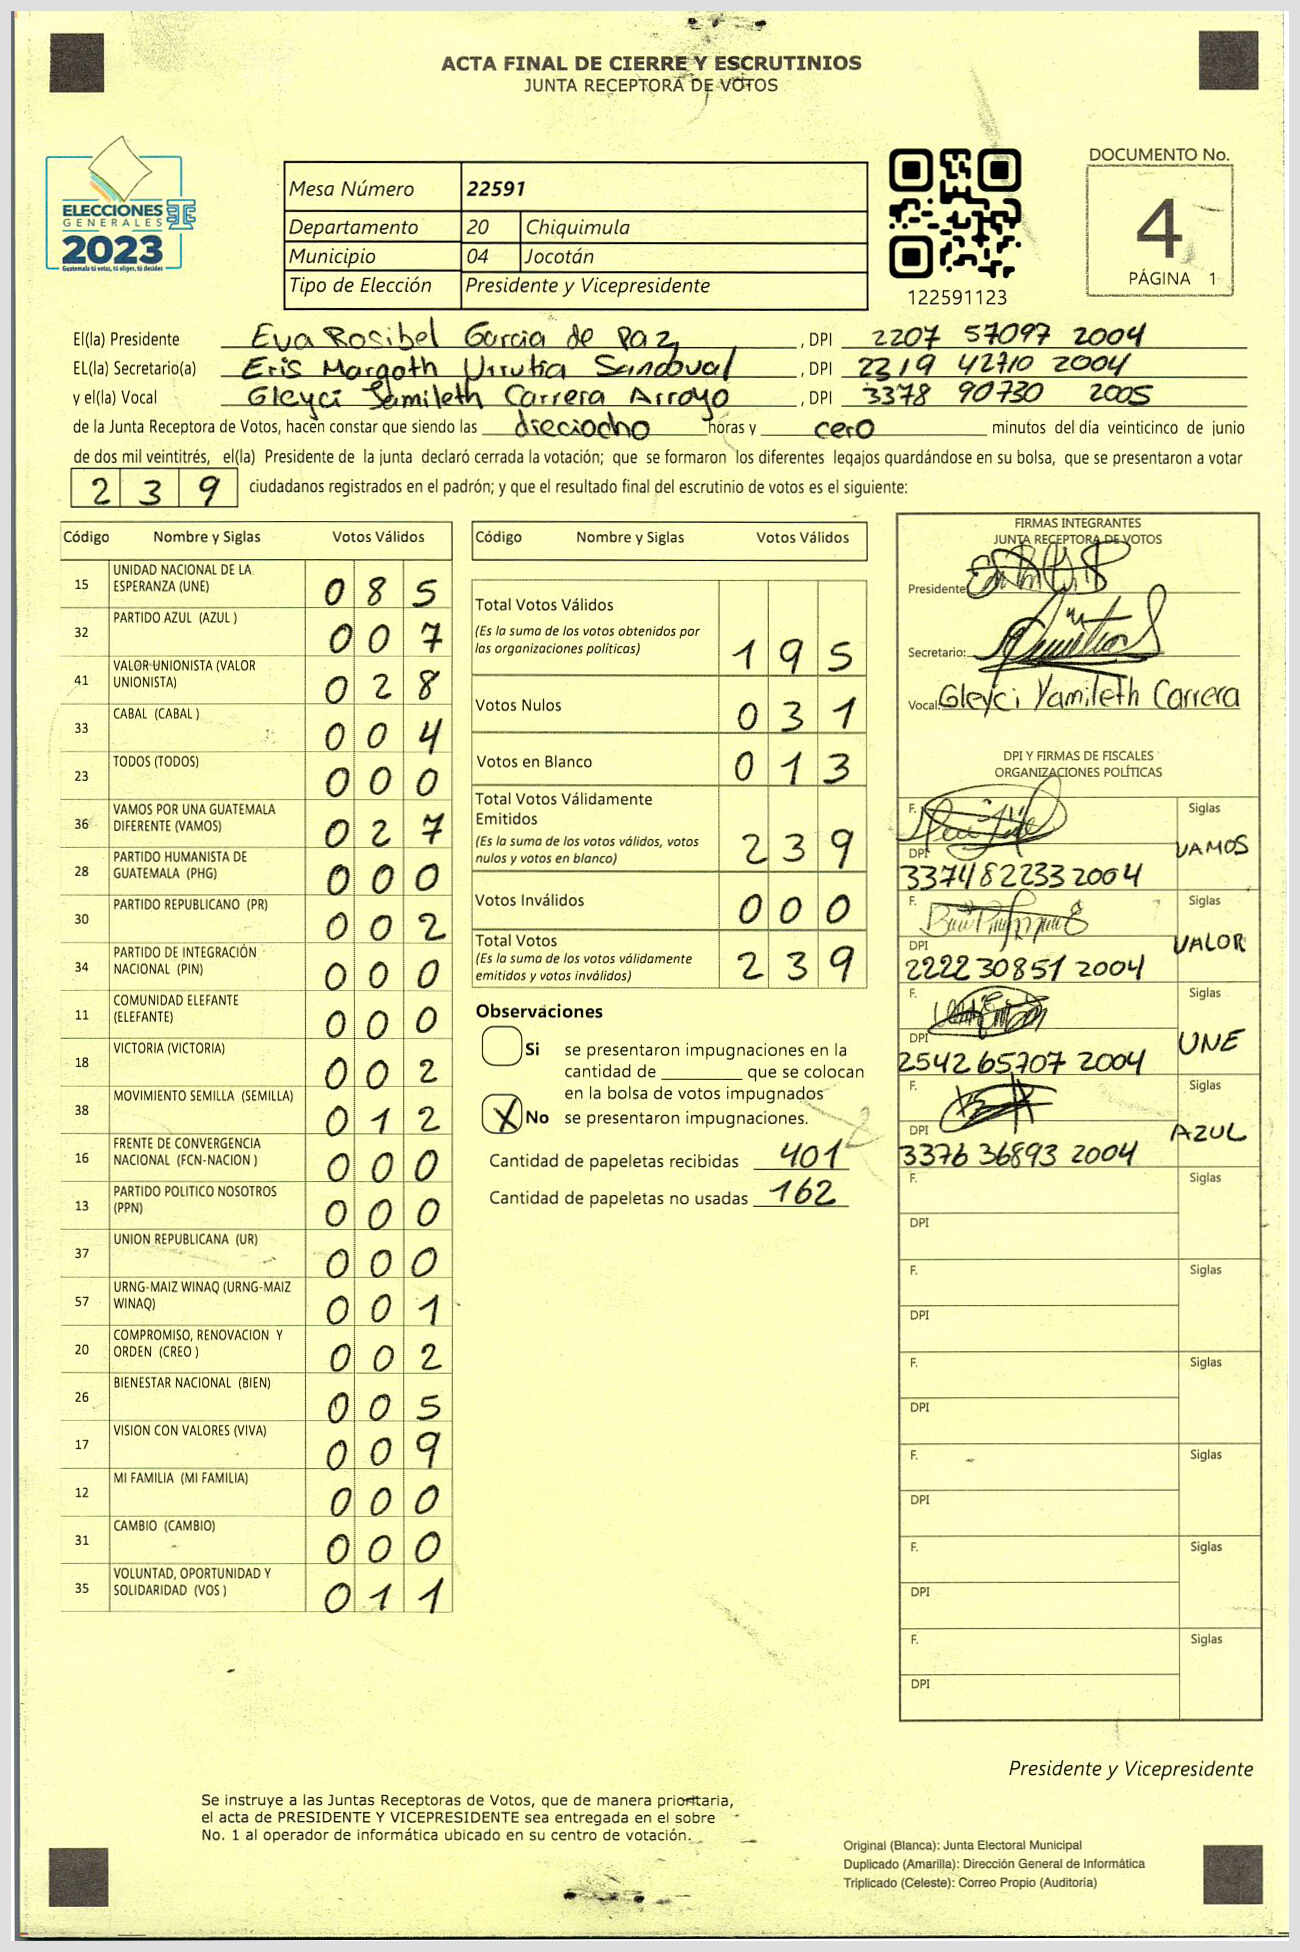 ACTA FINAL DE CIERRE Y ESCRUTINIOS
JUNTA RECEPTORA DE VOTOS
ELECCIONES
GENERALES
2023
Guatemala tú votas, tú eliges, tú decides
Mesa Número 22591
Departamento 20 Chiquimula
Municipio 04 Jocotán
Tipo de Elección Presidente y Vicepresidente
122591123
DOCUMENTO No.
4
PÁGINA 1
El(la) Presidente Eva Rosibel Garcia de Paz, DPI 2207 57097 2004
EL(la) Secretario(a) Eris Margoth Urrutia Sandoval, DPI 2319 42710 2004
y el(la) Vocal Gleyci Yamileth Carrera Arroyo, DPI 3378 90730 2005
de la Junta Receptora de Votos, hacen constar que siendo las dieciocho horas y cero minutos del día veinticinco de junio
de dos mil veintitrés, el(la) Presidente de la junta declaró cerrada la votación; que se formaron los diferentes legajos guardándose en su bolsa, que se presentaron a votar
239 ciudadanos registrados en el padrón; y que el resultado final del escrutinio de votos es el siguiente:
Código Nombre y Siglas Votos Válidos
15 UNIDAD NACIONAL DE LA ESPERANZA (UNE) 085
32 PARTIDO AZUL (AZUL ) 007
41 VALOR-UNIONISTA (VALOR UNIONISTA) 028
33 CABAL (CABAL ) 004
23 TODOS (TODOS) 000
36 VAMOS POR UNA GUATEMALA DIFERENTE (VAMOS) 027
28 PARTIDO HUMANISTA DE GUATEMALA (PHG) 000
30 PARTIDO REPUBLICANO (PR) 002
34 PARTIDO DE INTEGRACIÓN NACIONAL (PIN) 000
11 COMUNIDAD ELEFANTE (ELEFANTE) 000
18 VICTORIA (VICTORIA) 002
38 MOVIMIENTO SEMILLA (SEMILLA) 012
16 FRENTE DE CONVERGENCIA NACIONAL (FCN-NACION ) 000
13 PARTIDO POLITICO NOSOTROS (PPN) 000
37 UNION REPUBLICANA (UR) 000
57 URNG-MAIZ WINAQ (URNG-MAIZ WINAQ) 001
20 COMPROMISO, RENOVACION Y ORDEN (CREO ) 002
26 BIENESTAR NACIONAL (BIEN) 005
17 VISION CON VALORES (VIVA) 009
12 MI FAMILIA (MI FAMILIA) 000
31 CAMBIO (CAMBIO) 000
35 VOLUNTAD, OPORTUNIDAD Y SOLIDARIDAD (VOS ) 011
Código Nombre y Siglas Votos Válidos
Total Votos Válidos
(Es la suma de los votos obtenidos por
las organizaciones políticas) 195
Votos Nulos 031
Votos en Blanco 013
Total Votos Válidamente
Emitidos
(Es la suma de los votos válidos, votos
nulos y votos en blanco) 239
Votos Inválidos 000
Total Votos
(Es la suma de los votos válidamente
emitidos y votos inválidos) 239
Observaciones
Si se presentaron impugnaciones en la
cantidad de ________ que se colocan
en la bolsa de votos impugnados
X No se presentaron impugnaciones.
Cantidad de papeletas recibidas 401
Cantidad de papeletas no usadas 162
FIRMAS INTEGRANTES
JUNTA RECEPTORA DE VOTOS
Presidente:
Secretario:
Vocal: Gleyci Yamileth Carrera
DPI Y FIRMAS DE FISCALES
ORGANIZACIONES POLÍTICAS
F. Siglas
VAMOS
DPI
3374 82233 2004
F. Siglas
VALOR
DPI
2222 30851 2004
F. Siglas
UNE
DPI
2542 65707 2004
F. Siglas
AZUL
DPI
3376 36893 2004
F. Siglas
DPI
F. Siglas
DPI
F. Siglas
DPI
F. Siglas
DPI
F. Siglas
DPI
F. Siglas
DPI
Presidente y Vicepresidente
Se instruye a las Juntas Receptoras de Votos, que de manera prioritaria,
el acta de PRESIDENTE Y VICEPRESIDENTE sea entregada en el sobre
No. 1 al operador de informática ubicado en su centro de votación.
Original (Blanca): Junta Electoral Municipal
Duplicado (Amarilla): Dirección General de Informática
Triplicado (Celeste): Correo Propio (Auditoría)